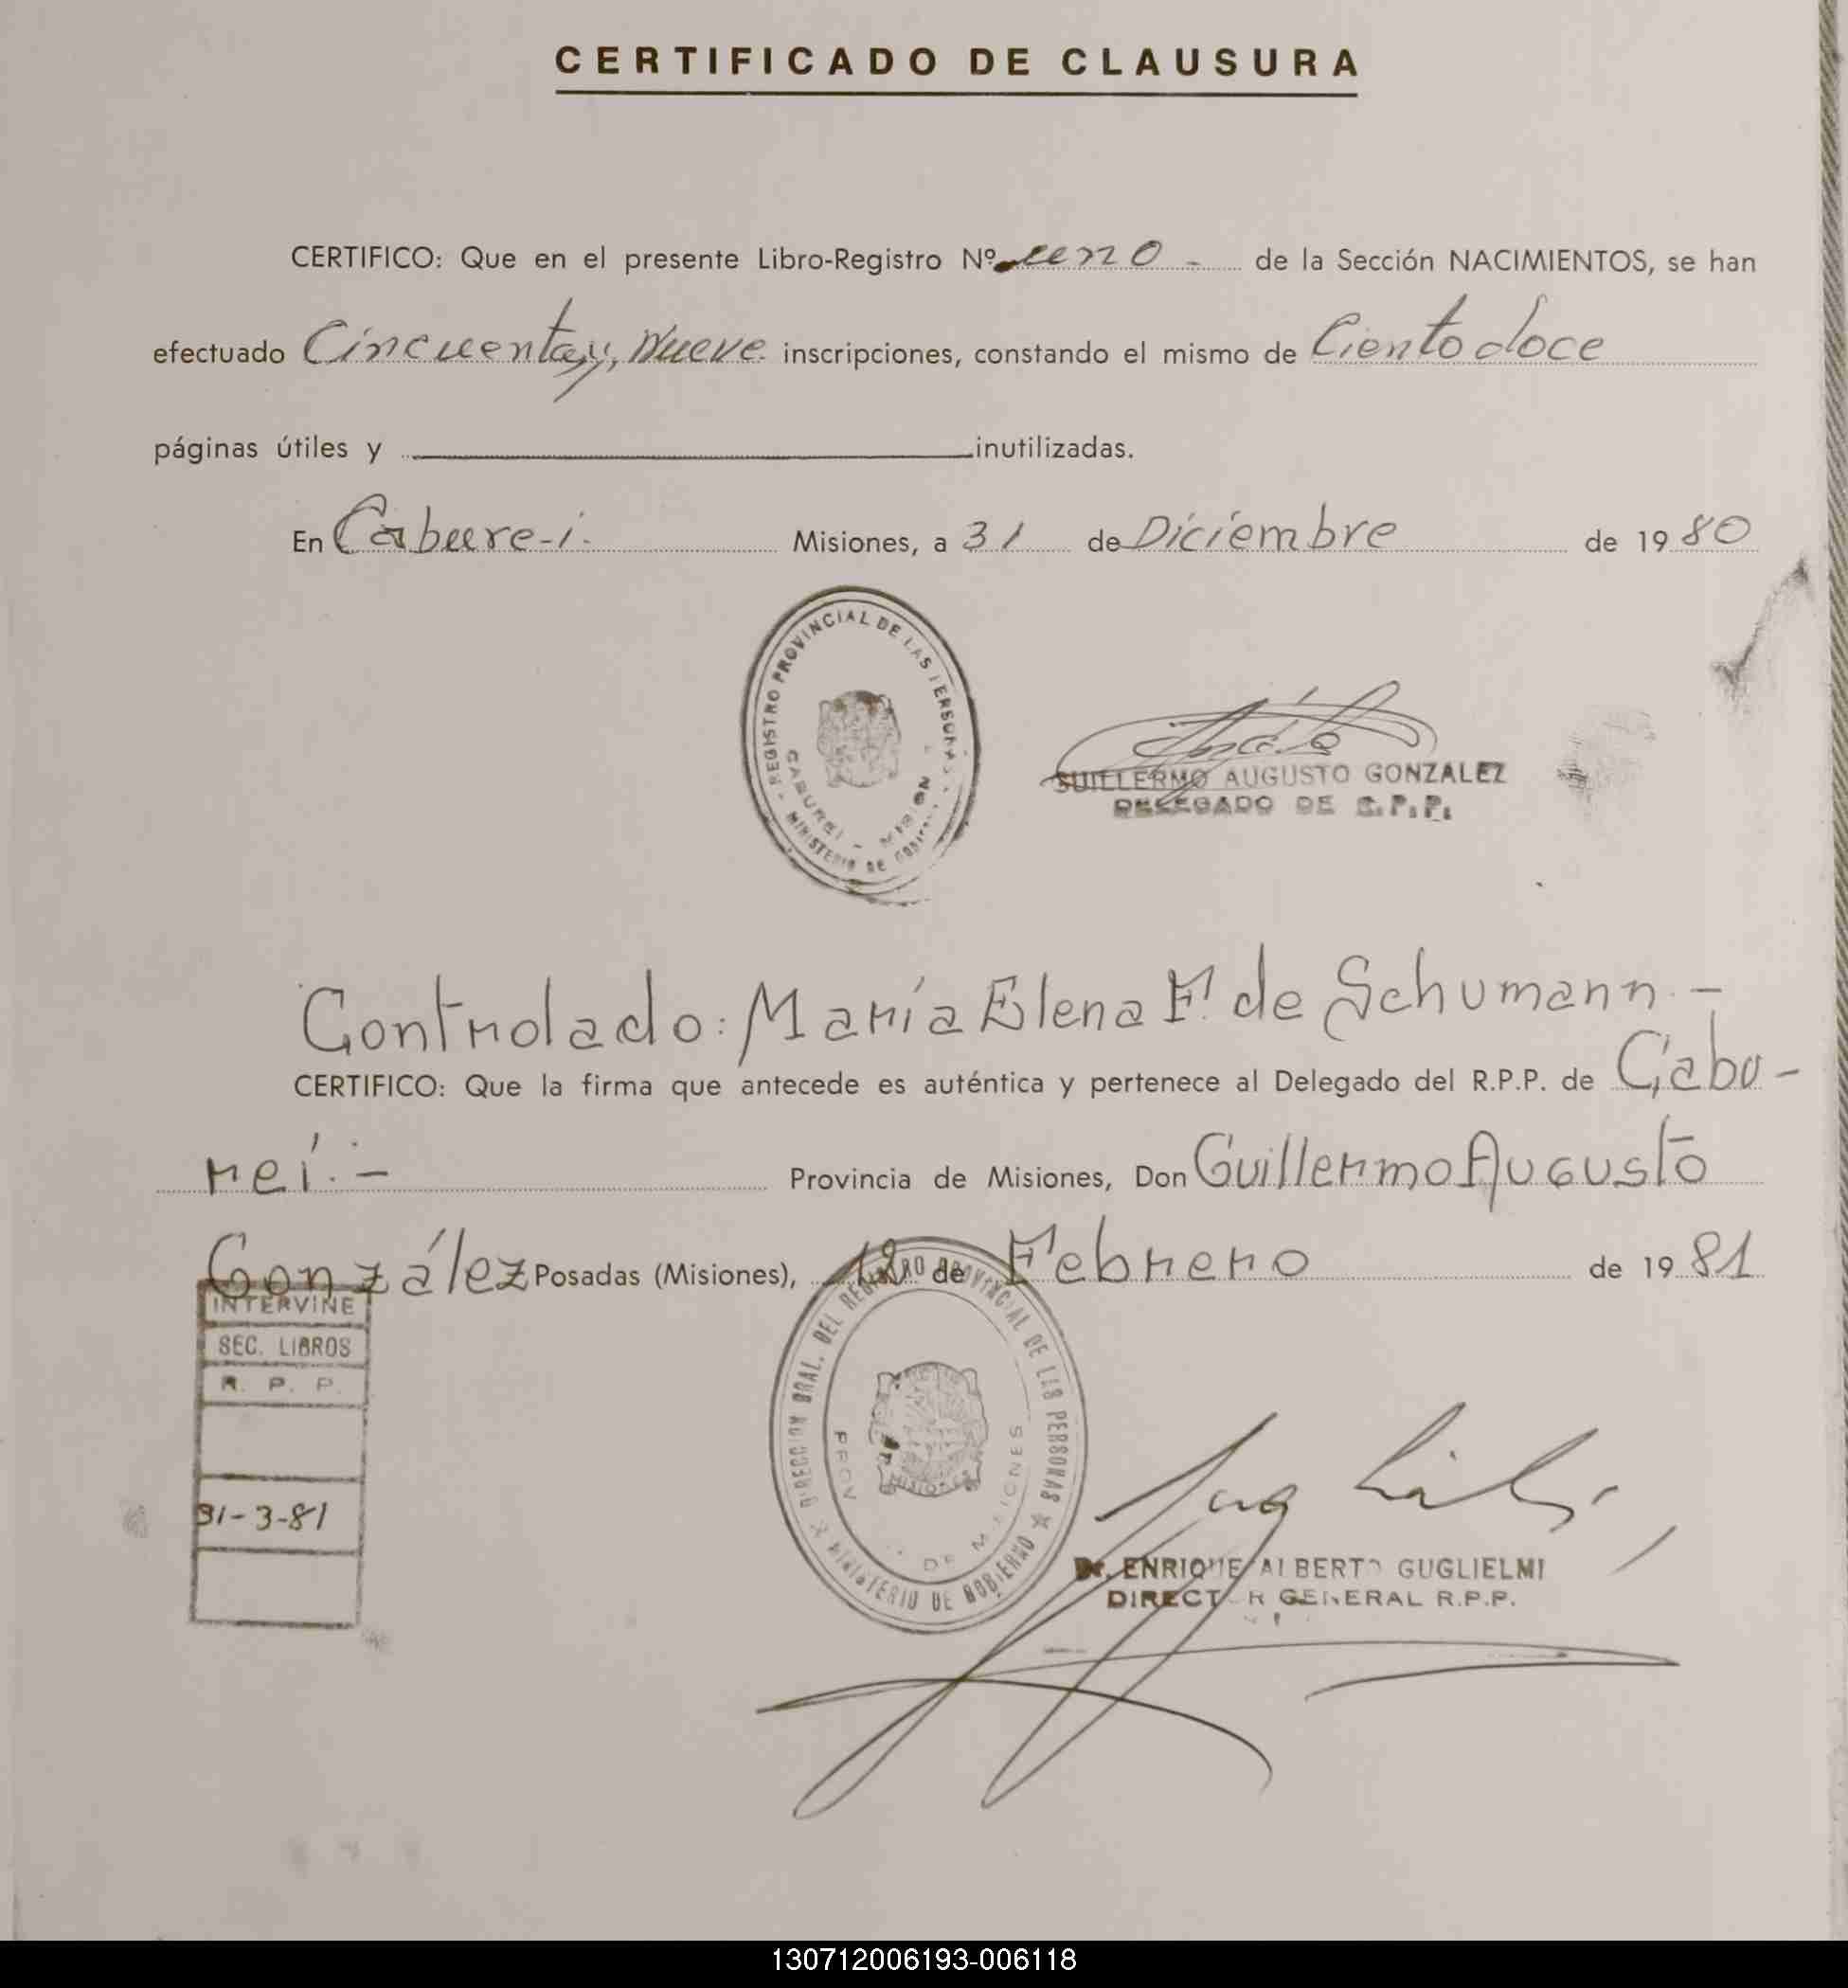 CERTIFICADO DE CLAUSURA
CERTIFICO: Que en el presente Libro-Registro Nº cero - de la Sección NACIMIENTOS, se han
efectuado Cincuenta y, Nueve inscripciones, constando el mismo de Ciento doce
páginas útiles y inutilizadas.
En Cabure-i. Misiones, a 31 de Diciembre de 1980
REGISTRO PROVINCIAL DE LAS PERSONAS
MINISTERIO DE GOBIERNO
CABUREI - MISIONES
GUILLERMO AUGUSTO GONZALEZ
DELEGADO DE R.P.P.
Controlado: María Elena F. de Schumann.-
CERTIFICO: Que la firma que antecede es auténtica y pertenece al Delegado del R.P.P. de Cabu-
reí.- Provincia de Misiones, Don Guillermo Augusto
González Posadas (Misiones), 12 de Febrero de 1981
INTERVINE
SEC. LIBROS
R. P. P.
31-3-81
DIRECCION GRAL. DEL REGISTRO PROVINCIAL DE LAS PERSONAS
MINISTERIO DE GOBIERNO
PROV. DE MISIONES
MISIONES
Dr. ENRIQUE ALBERTO GUGLIELMI
DIRECTOR GENERAL R.P.P.
130712006193-006118